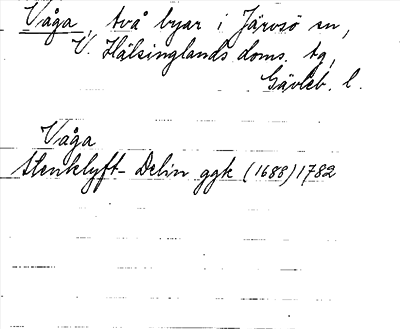 Våga, två byar i Järvsö sn,
V. Hälsinglands doms. tg,
Gävleb. l.
Våga
Stenklyft - Delin ggk (1688) 1782